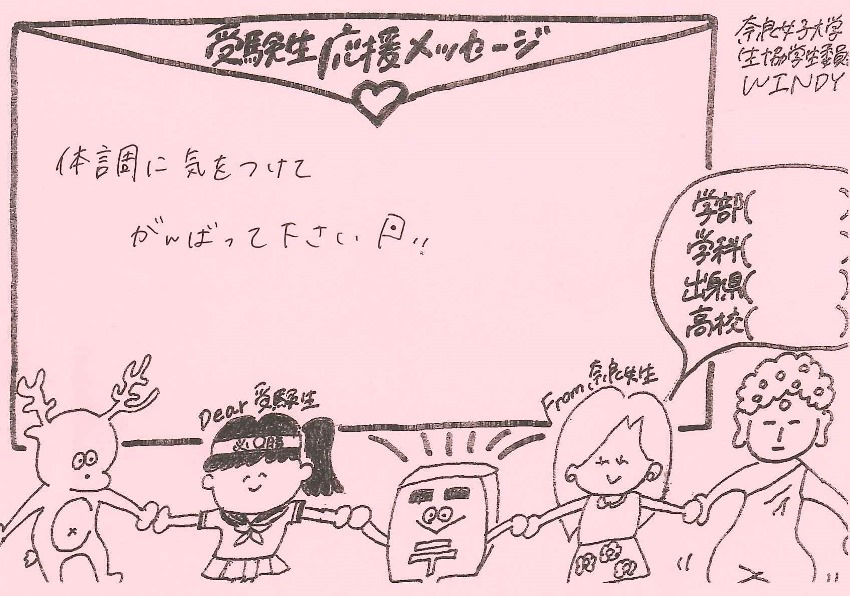 受験生応援メッセージ
奈良女子大学
生協学生委員
WINDY
体調に気をつけて
がんばって下さい!!
学部(　　　)
学科(　　　)
出身県(　　　)
高校(　　　)
Dear 受験生
From 奈良女生
必〇勝
〒